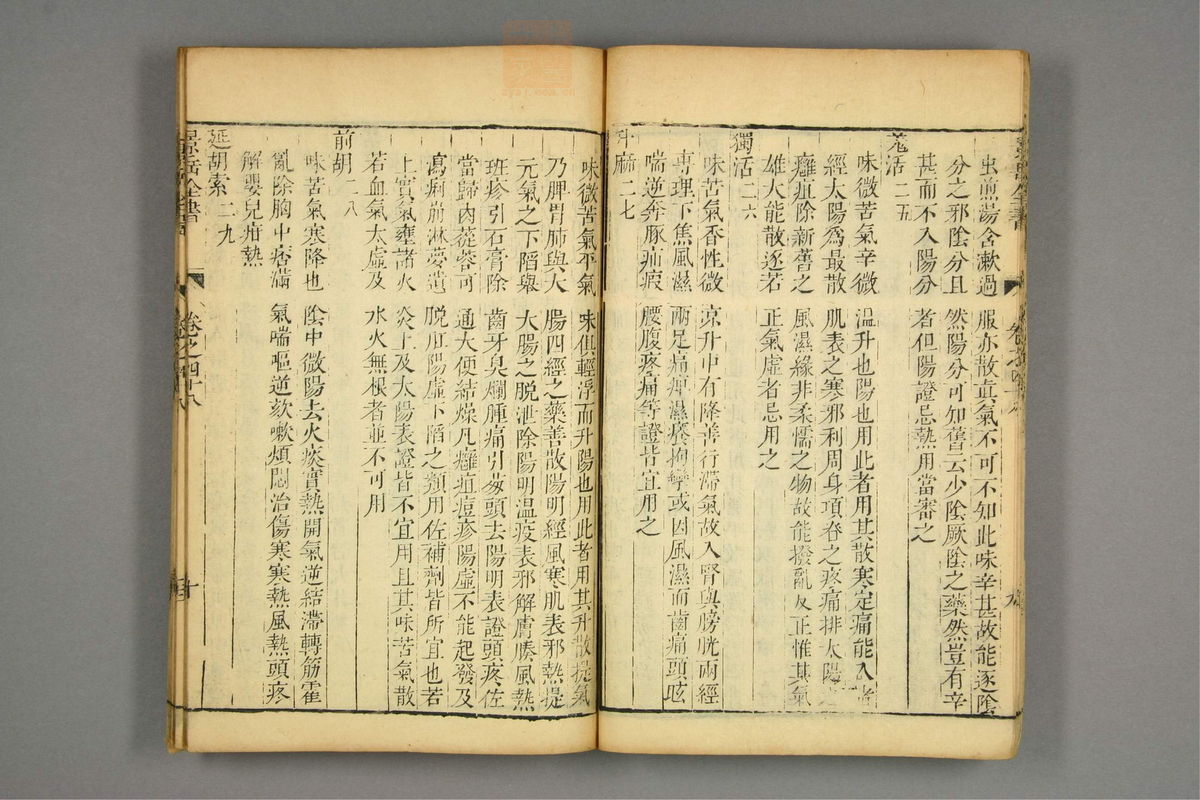 出煎湯含漱過服亦散眞氣不可不知此味辛甚故能逐陰
分之邪陰分且然陽分可知舊云少陰厥陰之藥然豈有辛
甚而不入陽分者但陽證忌熱用當審之
羗活二五
味微苦氣辛微温升也陽也用此者用其散寒定痛能入諸
經太陽爲最散肌表之寒邪利周身項脊之疼痛排太陽之
癰疽除新舊之風濕緣非柔懦之物故能撥亂反正惟其氣
雄大能散逐若正氣虛者忌用之
獨活二六
味苦氣香性微凉升中有降善行滯氣故入腎與膀胱兩經
専理下焦風濕兩足痛痺濕癢拘攣或因風濕而齒痛頭眩
喘逆奔豚疝瘕腰腹疼痛等證皆宜用之
升麻二七
味微苦氣平氣味俱輕浮而升陽也用此者用其升散提氣
乃脾胃肺與大腸四經之藥善散陽明經風寒肌表邪熱提
元氣之下陷舉大腸之脱泄除陽明温疫表邪解膚腠風熱
班疹引石膏除齒牙臭爛腫痛引葱頭去陽明表證頭疼佐
當歸肉蓯蓉可通大便結燥凡癰疽痘疹陽虛不能起發及
瀉痢崩淋夢遺脱肛陽虛下陷之類用佐補劑皆所宜也若
上實氣壅諸火炎上及太陽表證皆不宜用且其味苦氣散
若血氣太虛及水火無根者並不可用
前胡二八
味苦氣寒降也陰中微陽去火痰實熱開氣逆結滯轉筋霍
亂除胸中痞滿氣喘嘔逆欬嗽煩悶治傷寒寒熱風熱頭疼
解嬰兒疳熱
延胡索二九
景岳全書
卷之四十八
十